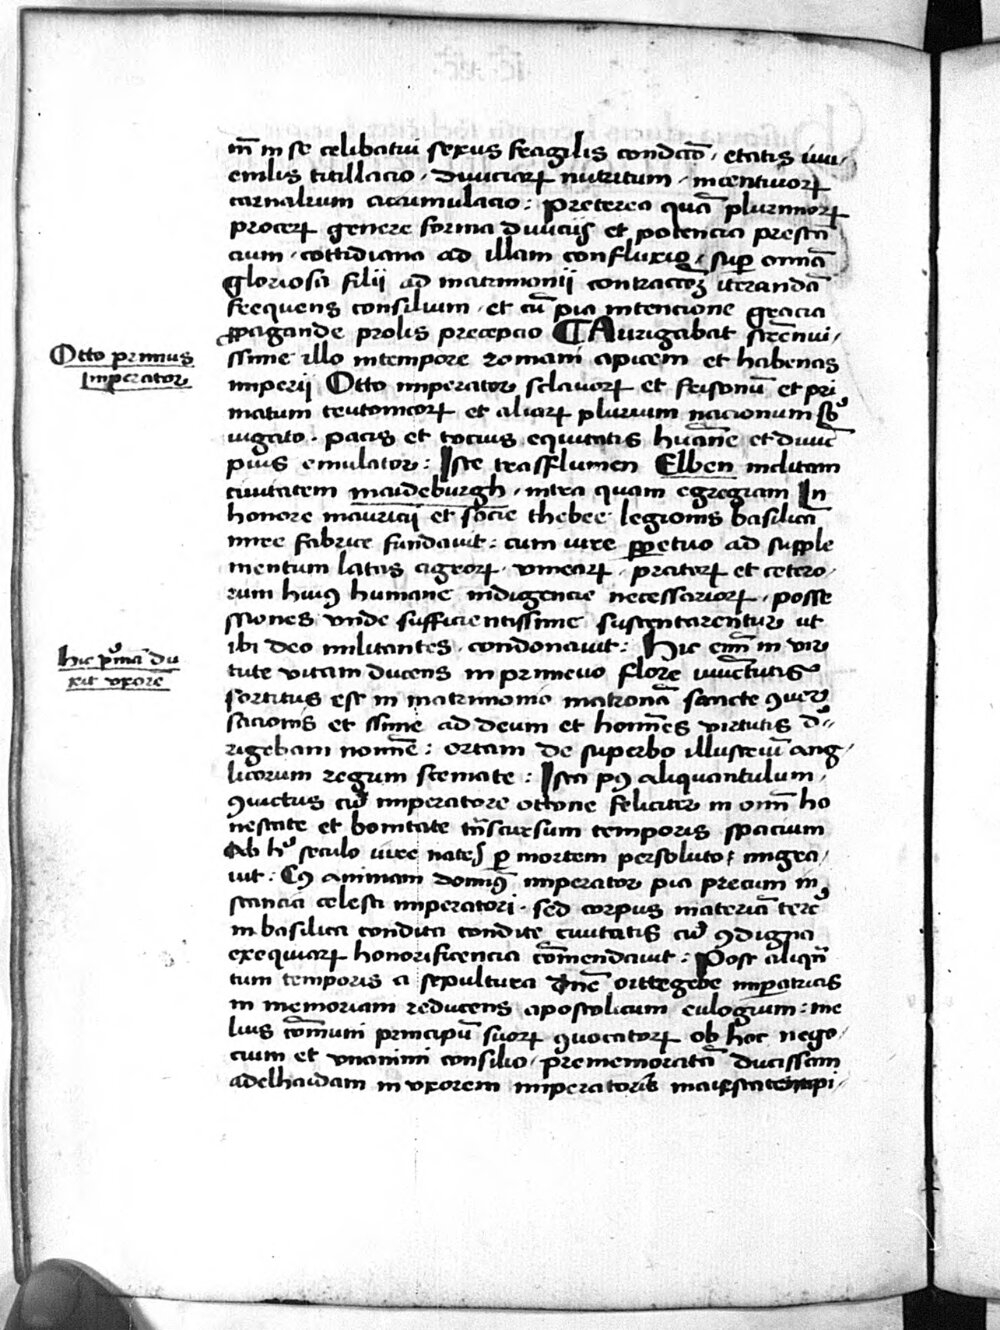 m̄ in se celibatui sexus fragilis condicō · etatis iuu/
enilis titillacio · diuiciaꝝ nutritum · incentiuoꝝ
carnalium accumulacio : Preterea quā plurimoꝝ
proceꝝ genere forma diuicijs et potencia prestā
cium · cottidiana ad illam confluxio / sup omā
gloriosa filij ad matrimonij contractoꝫ iterandā
frequens consilium · et cū pia intencione gracia
ꝓpagande prolis precepcio ¶ Aurigabat strēnui/
ssime illo intempore romani apicem et habenas
Otto primus
Imperator
imperij Otto imperator sclauoꝝ et frisonū et pri
matum teutonicoꝝ et aliaꝝ plurium nacionum sb'
iugato · pacis et tocius equitatis humāne et diuīe
pius emulator : Iste trasflumen Elben inclitam
ciuitatem maideburgh · intra quam egregiam In
honore mauricij et socie thebee legionis basilicā
mire fabrice fundauit : cum iure ꝑpetuo ad supple
mentum latus agroꝝ · vineaꝝ · pratoꝝ et cetero/
rum huiꝰ humane indigencie necessarioꝝ · posse
ssiones vnde sufficientissime sustentarentur ut
ibi deo militantes · condonauit : Hic enī in vir
hic p'mā du
xit vxorē
tute vitam ducens in primeuo flore iuuētutis
sortitus est in matrimonio matronā sancte ꝯuer
sacionis et ssime ad deum et homīes virtutis d'/
rigebam nomīe : ortam de superbo illustriū ang/
licorum regum stemate : Ista pꝰ aliquantulum /
ꝯuictus cū imperatore ottone feliciter in omī ho
nestate et bonitate trāscursum temporis spacium
Ab h' seculo iure nate ꝑ mortem persoluto : migra/
uit : Cꝰ animam domīꝰ imperator pia precum in
stancia celesti imperatori · sed corpus materiā terr'
in basilica condita condite ciuitatis cū ꝯdigna
exequiaꝝ honorificencia cōmendauit : Post aliqn̄
tum temporis a sepultura dn̄e ortegebe imperatricis
in memoriam reducens apostolicum eulogium : me
lius cōmuni principū suoꝝ ꝯuocatoꝝ ob hoc nego/
cium et vnanimi consilio / prememoratā ducissam
adelhaidam in vxorem imperatoris maiestatempi/